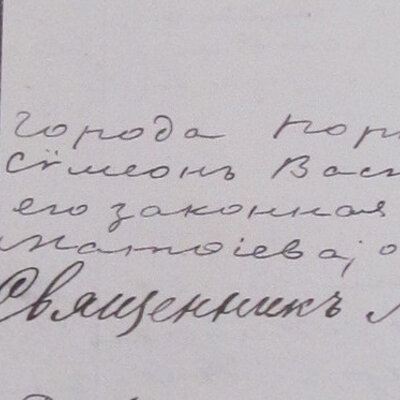 города пор
Сѵмеонъ Вас
его законная
матѳіева; о
Священникъ